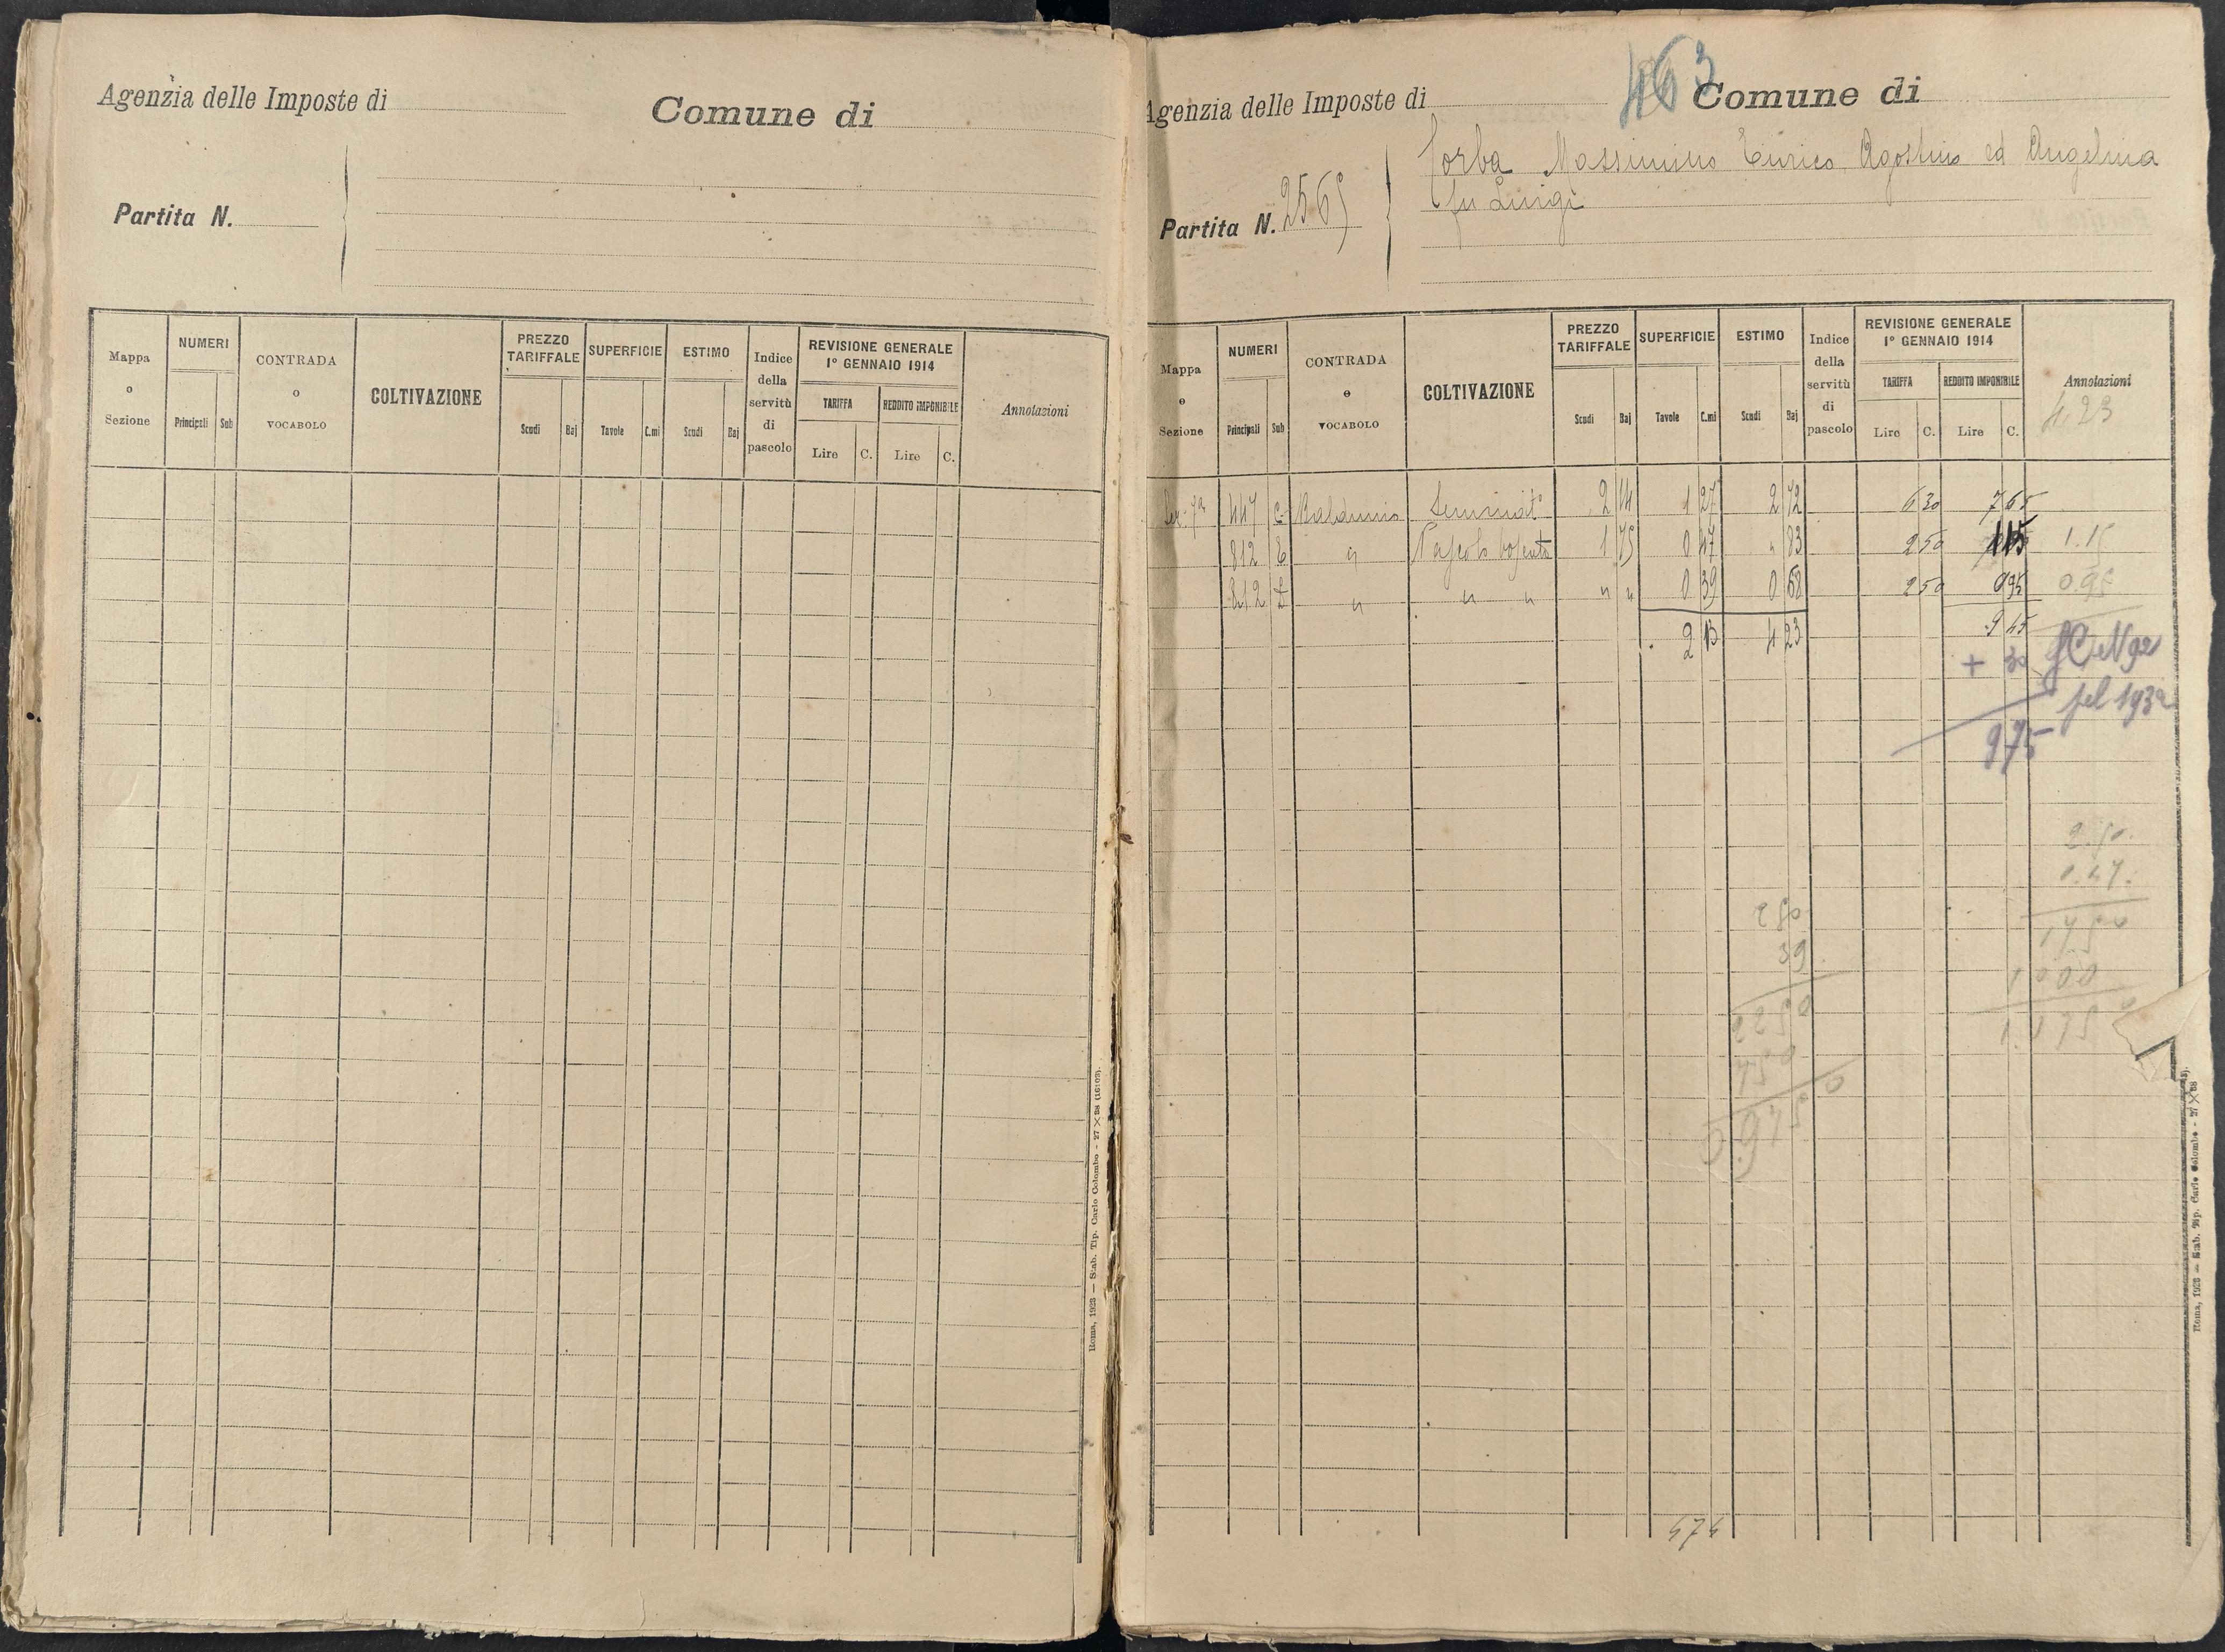 Agenzia delle Imposte di
Comune di
Partita N.
Mappa o Sezione
NUMERI
Principali Sub
CONTRADA o VOCABOLO
COLTIVAZIONE
PREZZO TARIFFALE
Scudi Baj
SUPERFICIE
Tavole C.mi
ESTIMO
Scudi Baj
Indice della servitù di pascolo
REVISIONE GENERALE
1º GENNAIO 1914
TARIFFA
Lire C.
REDDITO IMPONIBILE
Lire C.
Annotazioni
Roma, 1923 — Stab. Tip. Carlo Colombo - 27 X 38 (16103).
463
Agenzia delle Imposte di
Comune di
Massimino Enrico Agostino ed Angelina
fu Luigi
Partita N. 2565
Mappa o Sezione
NUMERI
Principali Sub
CONTRADA o VOCABOLO
COLTIVAZIONE
PREZZO TARIFFALE
Scudi Baj
SUPERFICIE
Tavole C.mi
ESTIMO
Scudi Baj
Indice della servitù di pascolo
REVISIONE GENERALE
1º GENNAIO 1914
TARIFFA
Lire C.
REDDITO IMPONIBILE
Lire C.
Annotazioni
4.23
Sez. 7a 447 c Seminat° 2 14 1 27 2 72 6 30 7 65
812 " Pascolo boscato 1 75 0 47 " 83 2 50 1 15 1.15
812 " " " " " 0 39 0 68 2 50 0 95 0.95
2 13 4 23 9 45
+ 30
N 92
pel 1932
975
2.50
1.47
250
39
1750
1000
2250
750
1.175
0.9750
474
Roma, 1923 — Stab. Tip. Carlo Colombo - 27 X 38